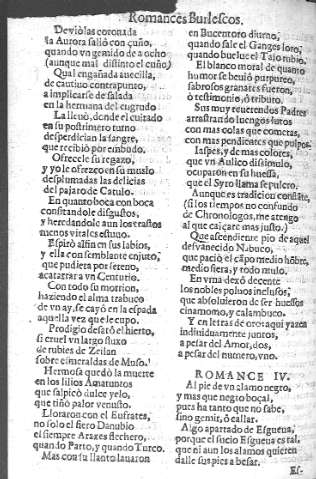 Romances Burlescos.
De viòlas coronada
la Aurora saliò con çuño,
quando vn gemido de a ocho
(aunque mal distinto el cuño)
Qual engañada auecilla,
de cautiuo contrapunto,
a implicarse desalada
en la hermana del engrudo
La lleuò, donde el cuitado
en su postrimero turno
desperdician la sangre,
que recibiò por embudo.
Ofrecele su regazo,
y yo le ofrezco en su muslo
desplumadas las delicias
del pajaro de Catulo.
En quanto boca con boca
confitandole disgustos,
y heredandole aun los trastos
menos vitales estuuo.
Espirò al fin en sus labios,
y ella con semblante enjuto,
que pudiera por sereno,
acatarrar a vn Centurio.
Con todo su morrion,
haziendo el alma trabuco
de vn ay, se cayò en la espada
aquella vez que le cupo.
Prodigio desatò el hierro,
si cruel vn largo fluxo
de rubies de Zeilan
sobre esmeraldas de Muso.
Hermosa quedò la muerte
en los lilios Amatuntos
que salpicò dulce yelo,
que tiñò palor venusto.
Lloraron con el Eufrates,
no solo el fiero Danubio
el siempre Araxes flechero,
quando Parto, y quando Turco.
Mas con su llanto lauaron
en Bucentoro diurno,
quando sale el Ganges loro,
quando buelue el Tajo rubio.
El blanco moral de quanto
humor se beuiò purpureo,
sabrosos granates fueron,
ò testimonio, ò tributo.
Sus muy reuerendos Padres
arrastrando luengos lutos
con mas colas que cometas,
con mas pendientes que pulpos.
Iaspes, y de mas colores,
que vn Aulico dissimulo,
ocuparon en su huessa,
que el Syro llama sepulcro.
Aunque es tradicion constante,
(si los tiempos no confundo
de Chronologos, me atengo
al que calçare mas justo.)
Que ascendiente pio de aquel
desvanecido Nabuco,
que paciò el cāpo medio hōbre,
medio fiera, y todo mulo.
En vrna dexò decente
los nobles polvos inclusos,
que absoluieron de ser huessos
cinamomo, y calambuco.
Y en letras de oro: aqui yazen
indiuiduamente juntos,
a pesar del Amor, dos,
a pesar del numero, vno.
ROMANCE IV.
Al pie de vn alamo negro,
y mas que negro boçal,
pues ha tanto que no sabe,
sino gemir, ò callar.
Algo apartado de Esgueua,
porque el sucio Esgueua es tal,
que ni aun los alamos quieren
dalle sus pies a besar.
Es-